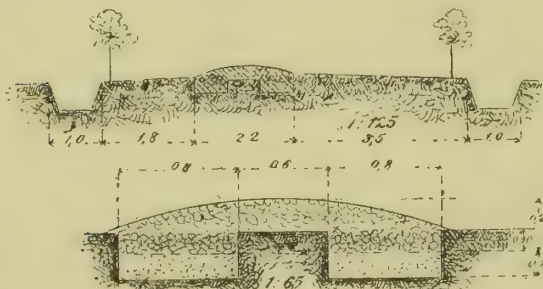 1:125
1,0 1,8 2,2 3,5 1,0
0,8 0,6 0,8
1:65